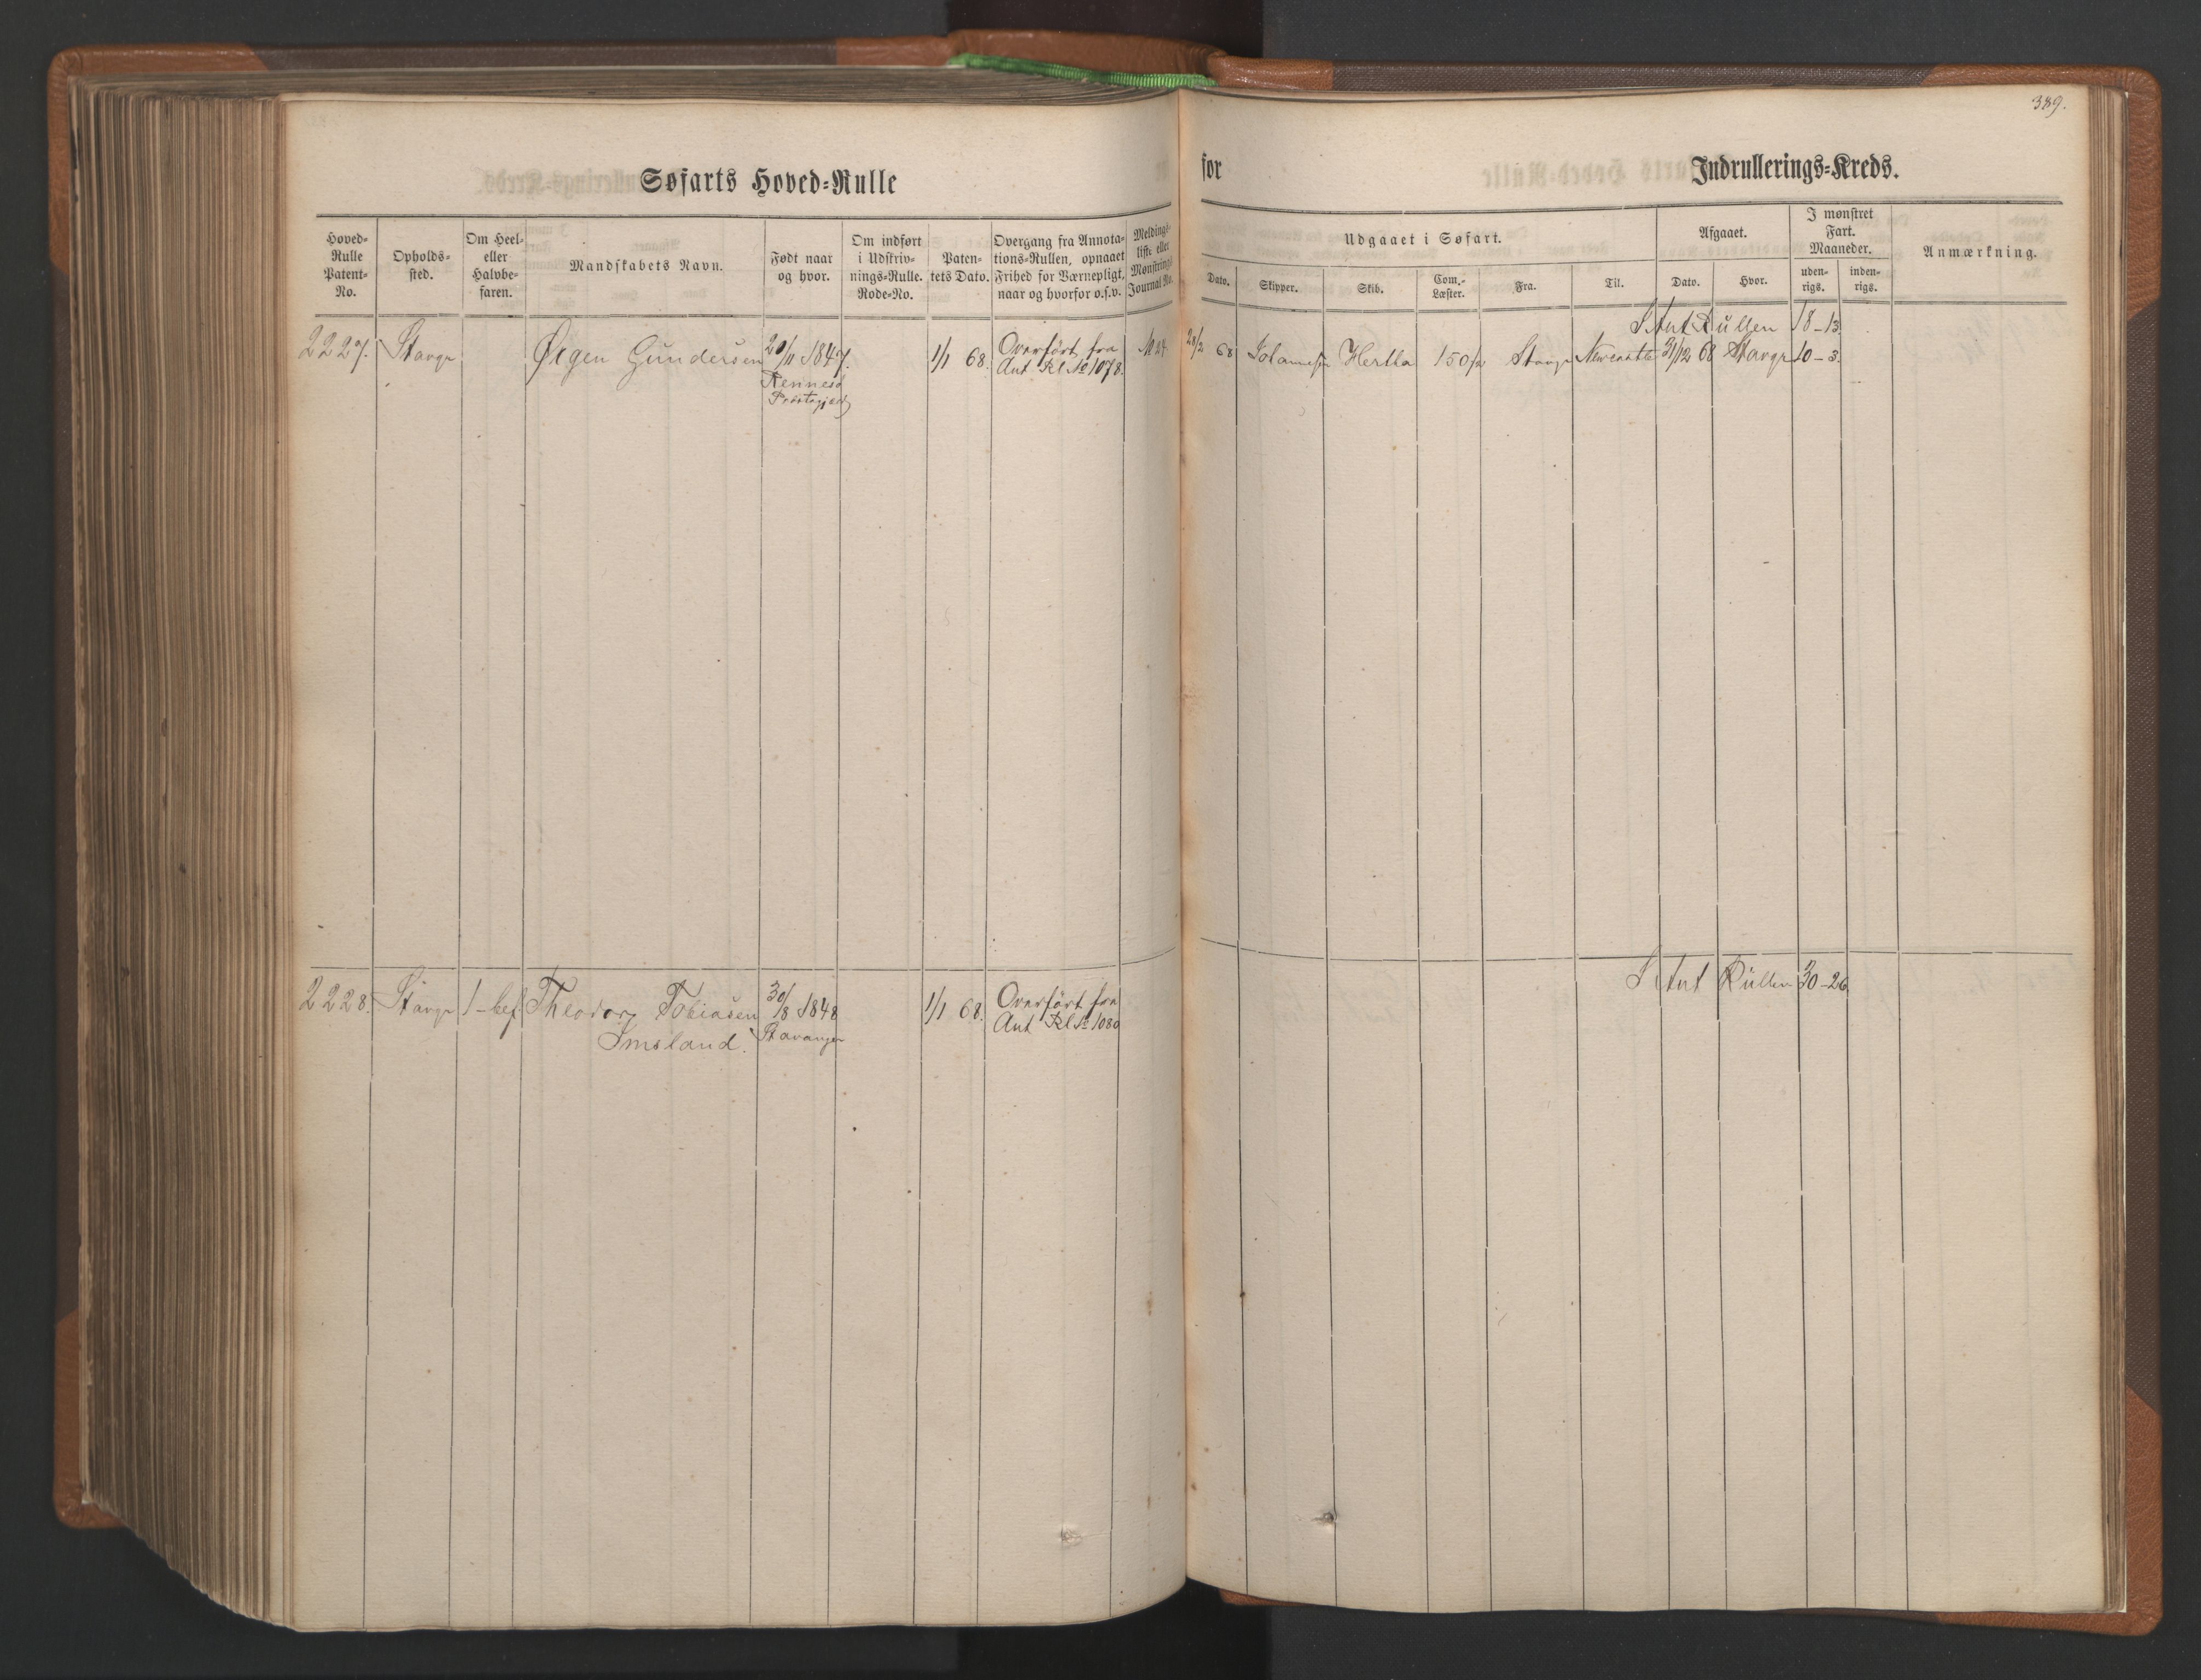 389.
Søfarts Hoved-Rulle for Indrullerings-Kreds.
Hoved-Rulle Patent-No.
Opholds-sted.
Om Heel- eller Halvbe-faren.
Mandskabets Navn.
Født naar og hvor.
Om indført i Udskriv-nings-Rulle. Rode-No.
Paten-tets Dato.
Overgang fra Annota-tions-Rullen, opnaaet Frihed for Værnepligt, naar og hvorfor o.s.v.
Meldings-liste eller Mønstrings Journal No.
Udgaaet i Søfart.
Dato.
Skipper.
Skib.
Com.-Læster.
Fra.
Til.
Afgaaet.
Dato.
Hvor.
I mønstret Fart. Maaneder.
uden-rigs.
inden-rigs.
Anmærkning.
I Ant Rullen 18-13
2227. Stavgr Ørgen Gundersen 20/11 1847. 1/1 68. Overført fra M 24 28/2 68 Hertha 150/2 Stavgr Newcastle 31/12 68 Stavgr 10-3.
Rennesø Ant Rl No 1078.
Præstegjæld
2228. Stavgr 1-bef. Theodor Tobiasen 30/8 1848 1/1 68. Overført fra I Ant Rullen 30-26
Imsland. Stavanger Ant Rl No 1080